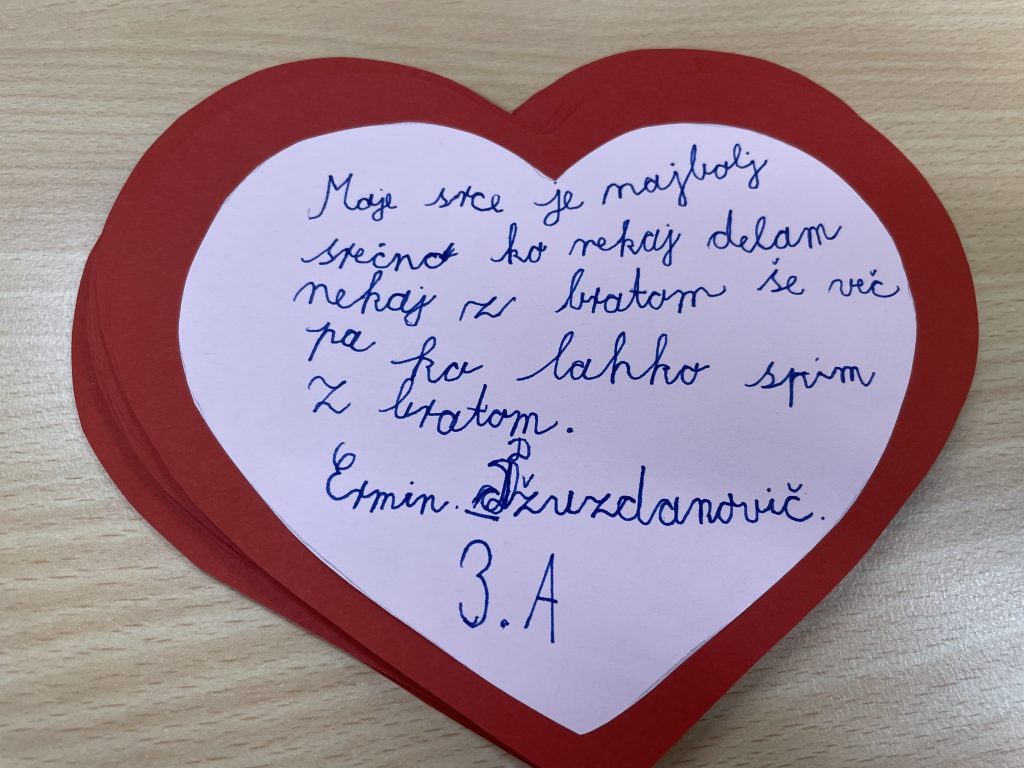 Moje srce je najbolj
srečno ko nekaj delam
nekaj z bratom še več
pa ko lahko spim
z bratom.
Ermin Džuzdanovič.
3. A